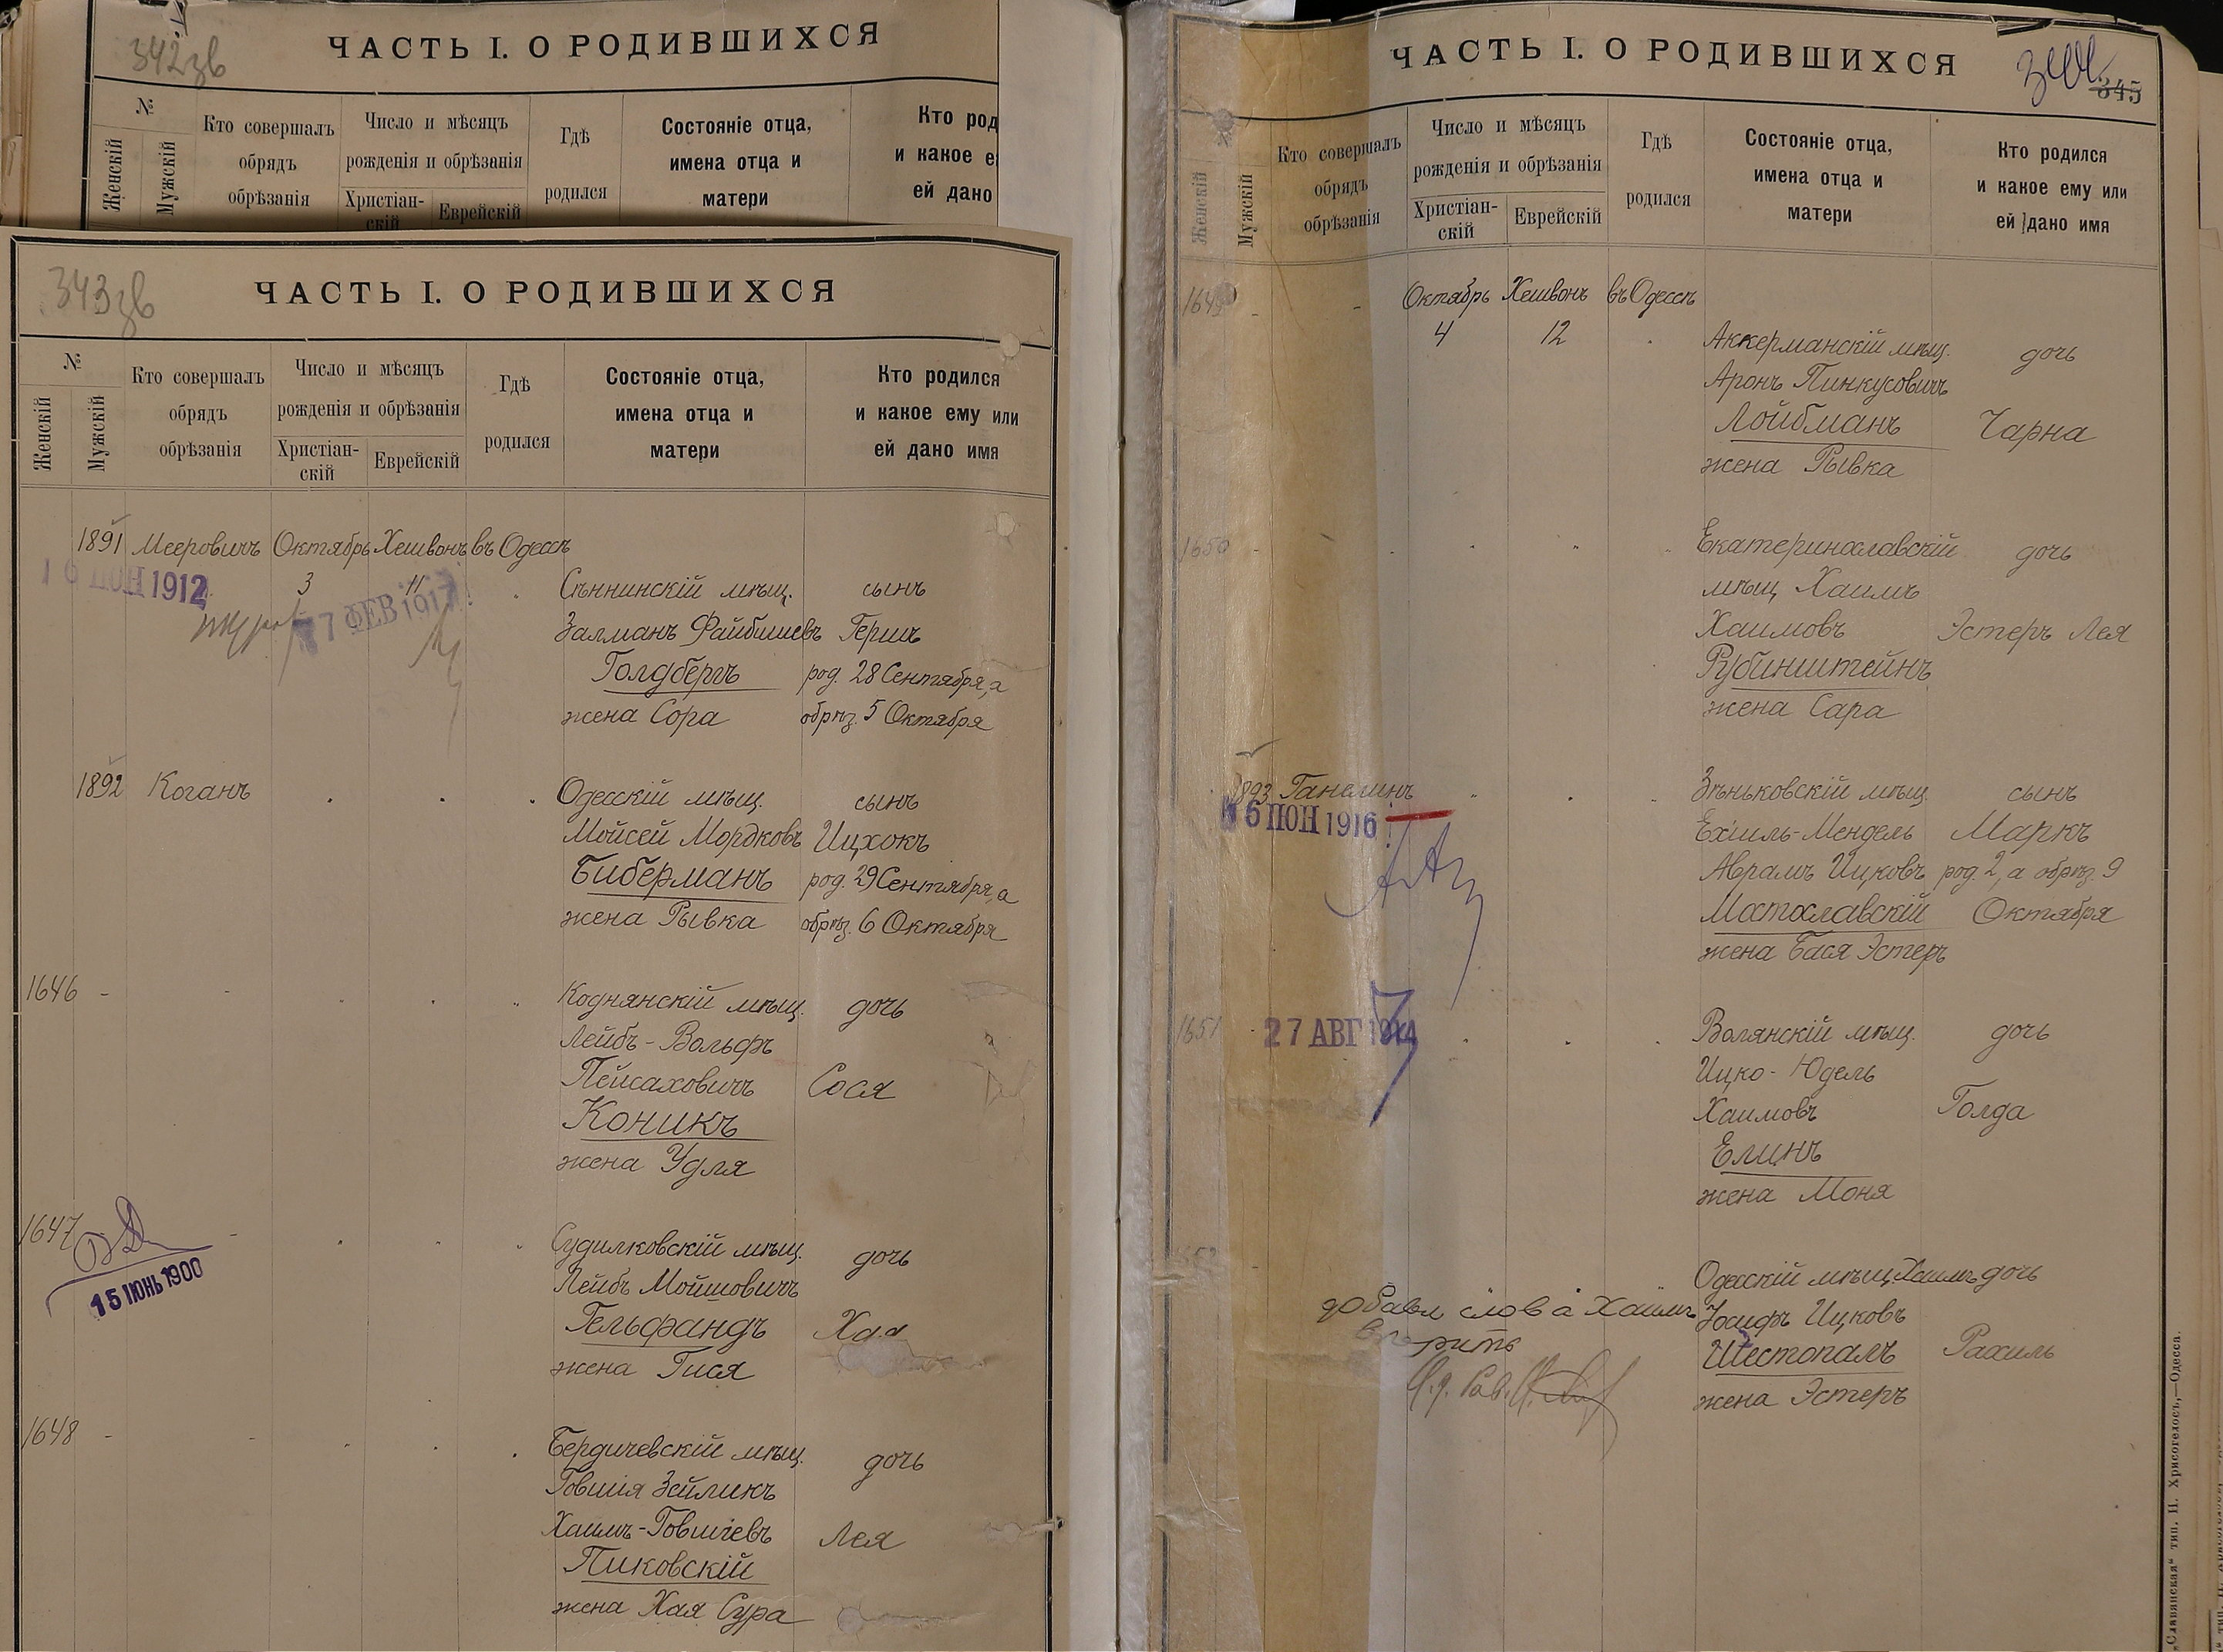 342зв
ЧАСТЬ I. О РОДИВШИХСЯ
№
Женскій
Мужскій
Кто совершалъ
обрядъ
обрѣзанія
Число и мѣсяцъ
рожденія и обрѣзанія
Христіан-
скій
Еврейскій
Гдѣ
родился
Состояніе отца,
имена отца и
матери
Кто род
и какое е
ей дано
343зв
ЧАСТЬ I. О РОДИВШИХСЯ
№
Женскій
Мужскій
Кто совершалъ
обрядъ
обрѣзанія
Число и мѣсяцъ
рожденія и обрѣзанія
Христіан-
скій
Еврейскій
Гдѣ
родился
Состояніе отца,
имена отца и
матери
Кто родился
и какое ему или
ей дано имя
1891 Мееровичъ Октябрь Хешвонъ въ Одессѣ
ІЮН 1912
3 11
7 ФЕВ 1917
Сѣннинскій мѣщ. сынъ
Залманъ Файбишевъ Гершъ
Голдбергъ род. 28 Сентября, а
жена Сора обрѣз. 5 Октября
1892 Коганъ
Одесскій мѣщ. сынъ
Мойсей Мордковъ Ицхокъ
Биберманъ род. 29 Сентября, а
жена Рывка обрѣз. 6 Октября
1646 -
Коднянскій мѣщ. дочь
Лейбъ-Вольфъ
Пейсаховичъ Сося
Коникъ
жена Удля
1647
15 ІЮНЬ 1900
Судилковскій мѣщ. дочь
Лейбъ Мойшовичъ
Гельфандъ Хая
жена Гися
1648 -
Бердичевскій мѣщ. дочь
Говшія Зейликъ
Хаимъ-Говшіевъ Лея
Пиковскій
жена Хая Сура
ЧАСТЬ I. О РОДИВШИХСЯ
344
345
Женскій
Мужскій
Кто совершалъ
обрядъ
обрѣзанія
Число и мѣсяцъ
рожденія и обрѣзанія
Христіан-
скій
Еврейскій
Гдѣ
родился
Состояніе отца,
имена отца и
матери
Кто родился
и какое ему или
ей дано имя
1649 - Октябрь Хешвонъ въ Одессѣ
4 12
Аккерманскій мѣщ. дочь
Аронъ Пинкусовичъ
Лойбманъ Чарна
жена Рывка
1650 -
Екатеринославскій дочь
мѣщ Хаимъ
Хаимовъ Эстеръ Лея
Рубинштейнъ
жена Сара
1893 Ганелинъ
16 ІЮН 1916
Зѣньковскій мѣщ. сынъ
Ехіиль-Мендель Маркъ
Абрамъ Ицковъ род. 2, а обрѣз. 9
Мостославскій Октября
жена Бася Эстеръ
1651
27 АВГ 1914
Волянскій мѣщ. дочь
Ицко-Юдель
Хаимовъ Голда
Елинъ
жена Моня
1652
Одесскій мѣщ. Хаимъ дочь
Іосифъ Ицковъ
Шестопалъ Рахиль
жена Эстеръ
добавл слова Хаимъ
И. д. Рав.
„Славянская" тип. Н. Хрисогелосъ,—Одесса.